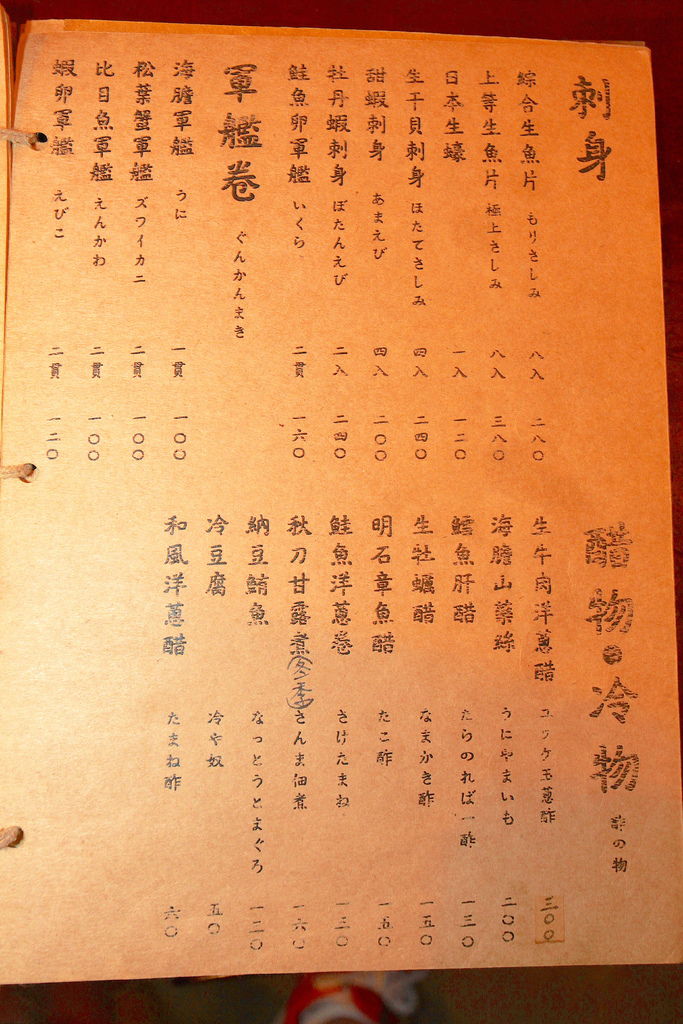 刺身
綜合生魚片 もりさしみ 八入 二八〇
上等生魚片 極上さしみ 八入 三八〇
日本生蠔 一入 一二〇
生干貝刺身 ほたてさしみ 四入 二四〇
甜蝦刺身 あまえび 四入 二〇〇
牡丹蝦刺身 ぼたんえび 二入 二四〇
鮭魚卵軍艦 いくら 二貫 一六〇
軍艦卷 ぐんかんまき
海膽軍艦 うに 一貫 一〇〇
松葉蟹軍艦 ズワイカニ 二貫 一〇〇
比目魚軍艦 えんかわ 二貫 一〇〇
蝦卵軍艦 えびこ 二貫 一二〇
醋物●冷物 酢の物
生牛肉洋蔥醋 ユッケ玉蔥酢 三〇〇
海膽山藥絲 うにやまいも 二〇〇
鱈魚肝醋 たらのればー酢 一三〇
生牡蠣醋 なまかき酢 一五〇
明石章魚醋 たこ酢 一五〇
鮭魚洋蔥卷 さけたまね 一三〇
秋刀甘露煮(冬季) さんま佃煮 一六〇
納豆鮪魚 なっとうとまぐろ 一二〇
冷豆腐 冷や奴 五〇
和風洋蔥醋 たまね酢 六〇